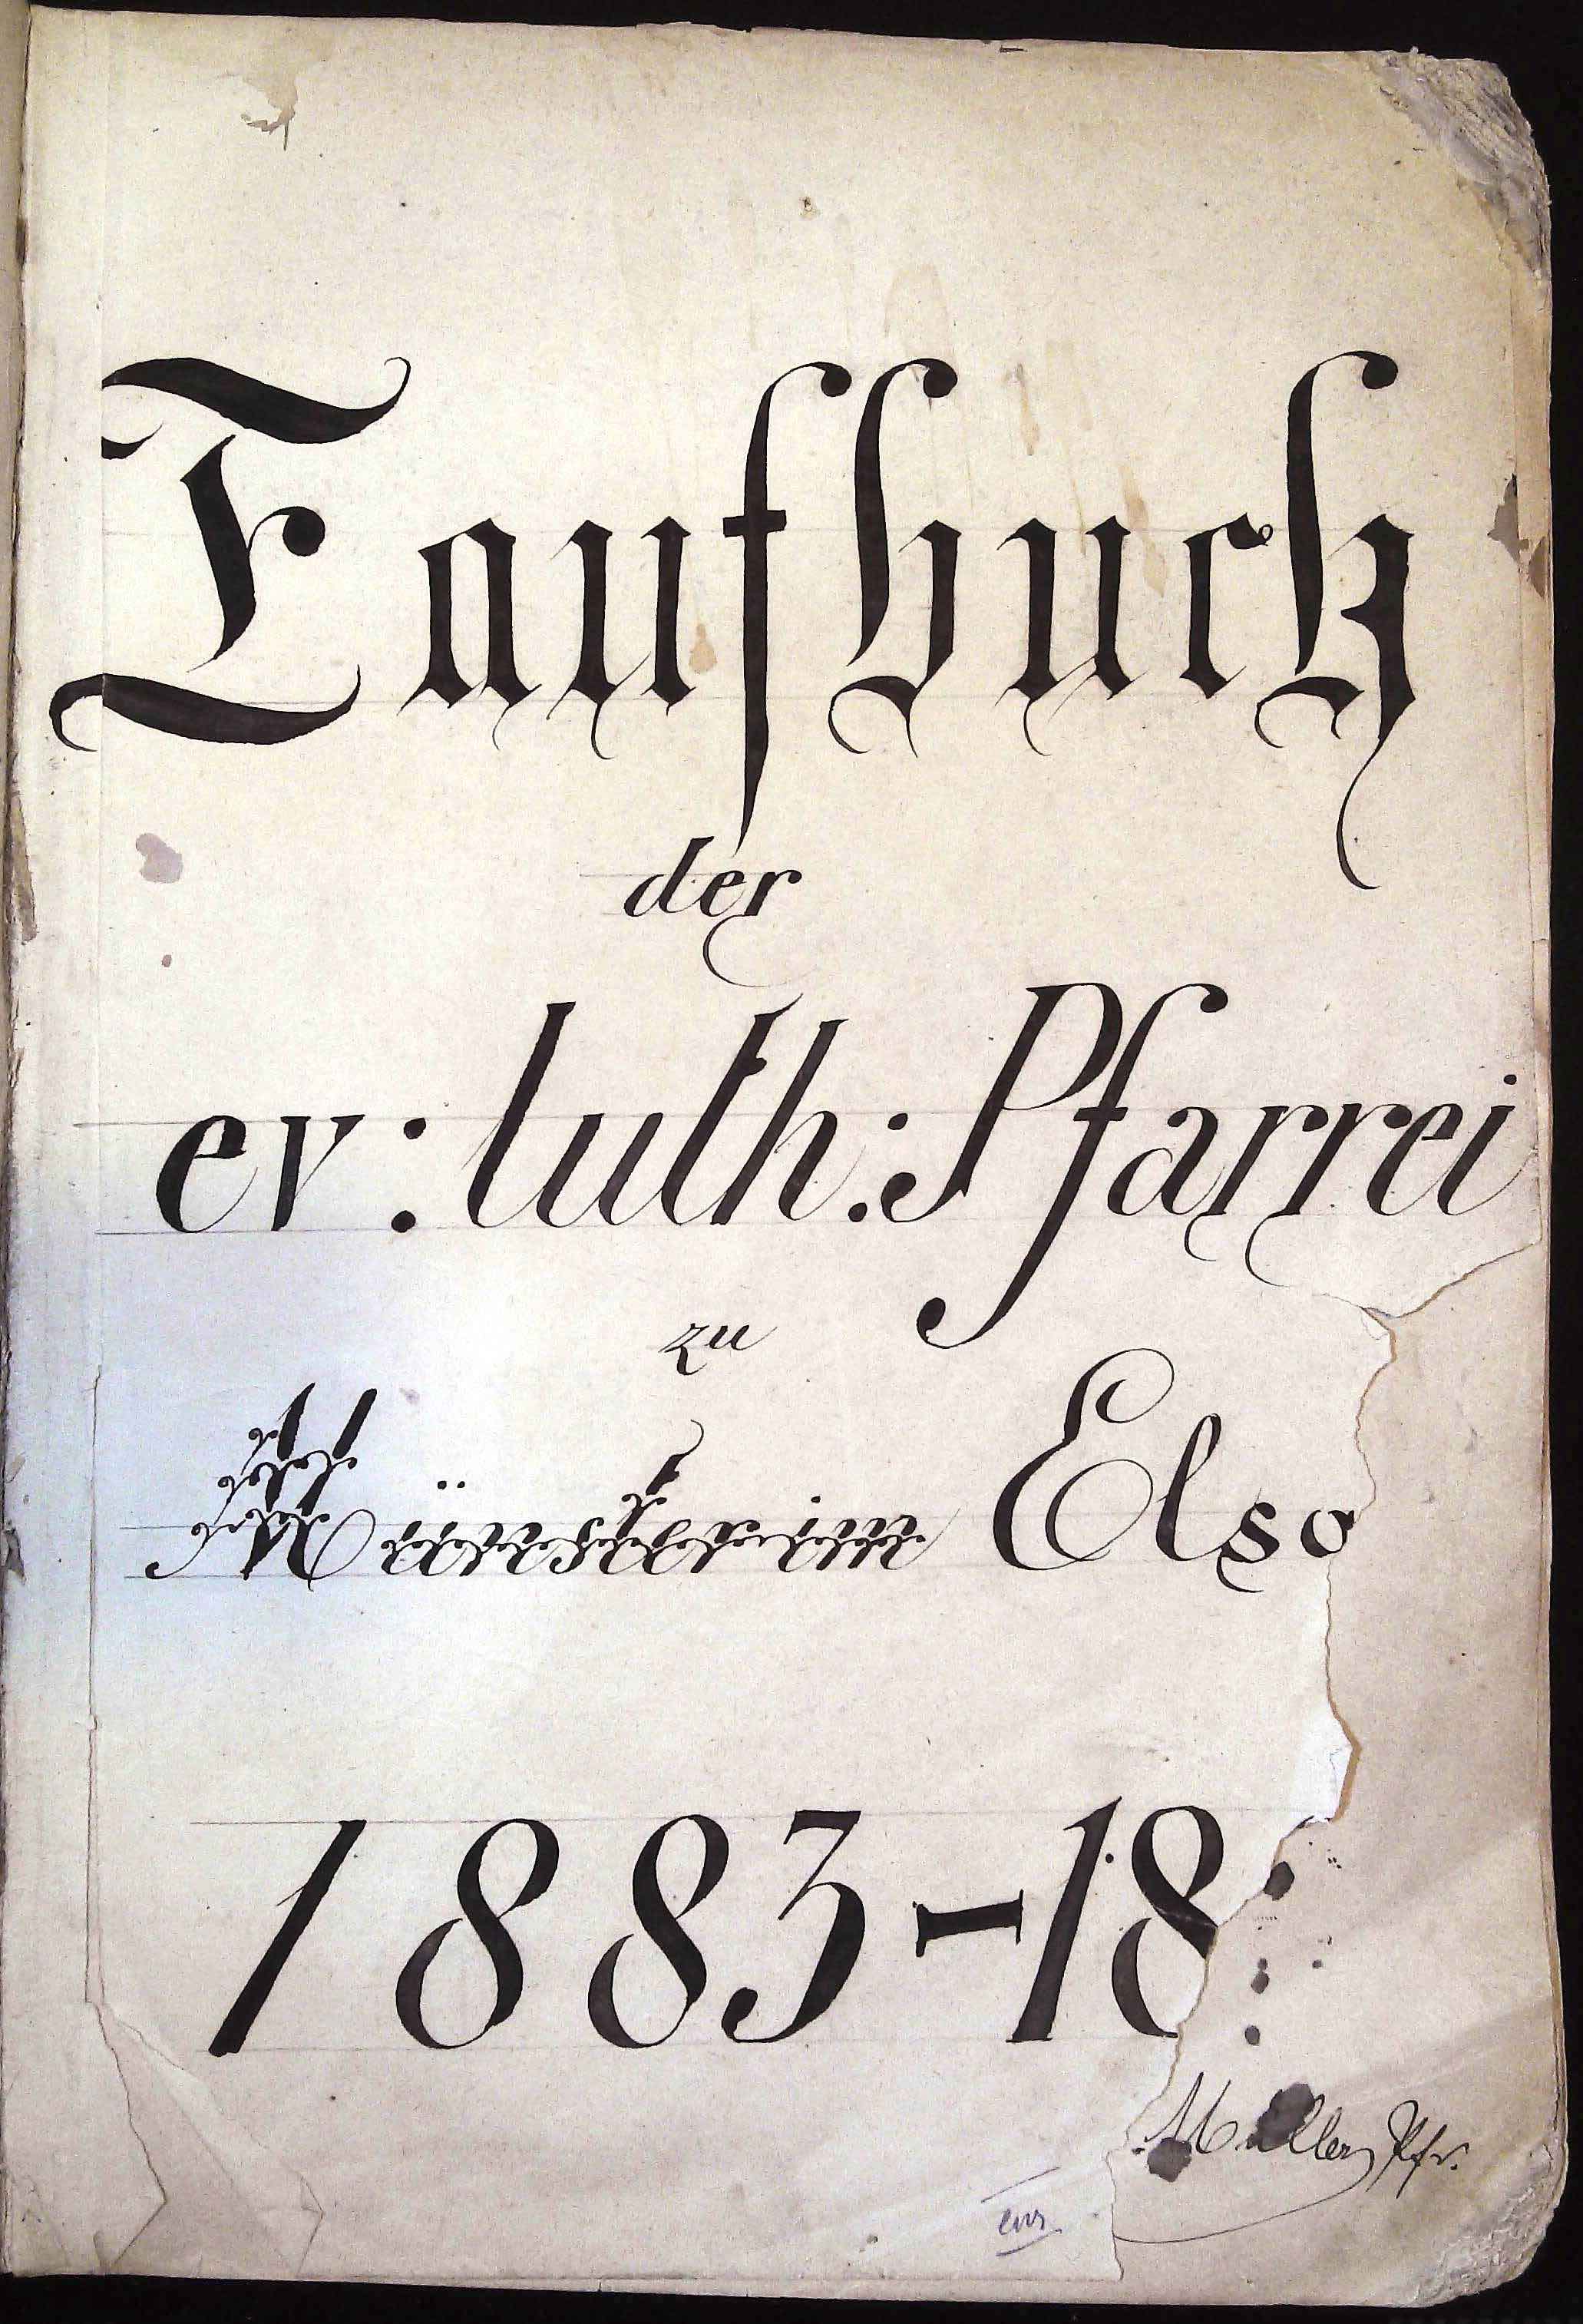 Taufbuch
der
ev: luth: Pfarrei
zu
Münster im Elsa
1883-18
Müller Pfr.